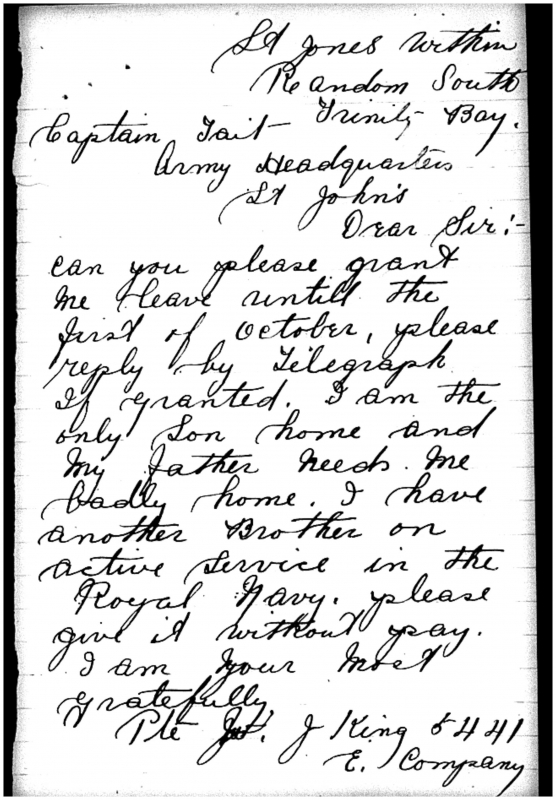 St Jones Within
Random South
Trinity Bay.
Captain Tait
Army Headquarters
St John's
Dear Sir:-
can you please grant
me leave untill the
first of October, please
reply by Telegraph
If granted. I am the
only Son home and
My father needs me
badly home. I have
another Brother on
active service in the
Royal Navy. please
give it without pay.
I am your Most
gratefully
Pte J King 5441
E. Company